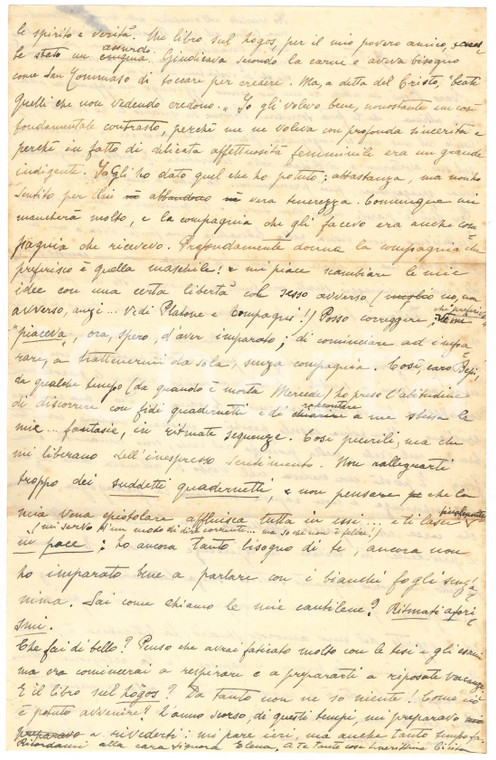 le spirito e verità. Un libro sul logos, per il mio povero amico,
be stato un assurdo. Giudicava secondo la carne e aveva bisogno
come San Tommaso di toccare per credere. Ma, a detta del Cristo, "beati
quelli che non vedendo credono". Io gli volevo bene, nonostante un così
fondamentale contrasto, perché me ne voleva con profonda sincerità e
perché in fatto di delicata affettuosità femminile era un grande
indigente. Io gli ho dato quel che ho potuto; abbastanza, ma non ho
sentito per lui vera tenerezza. Comunque mi
mancherà molto, e la compagnia che gli facevo era anche com-
pagnia che ricevevo. Profondamente donna la compagnia che
preferisco è quella maschile! e mi piace scambiare le mie
idee con una certa libertà col sesso avverso (no, ma
avverso, anzi... vedi Platone e Compagni!) Posso correggere: che preferi-
piaceva, ora, spero, d'aver imparato; di cominciare ad impa-
rare, a trattenermi da sola, senza compagnia. Così, caro Bepi,
da qualche tempo (da quando è morta Mercede) ho preso l'abitudine
di discorrere con fidi quadernetti e di raccontare a me stessa le
mie... fantasie, in ritmate sequenze. Cose puerili, ma che
mi liberano dell'inespresso sentimento. Non rallegrarti
troppo dei suddetti quadernetti, e non pensare che la
mia vena epistolare affluisca tutta in essi... e ti lasci finalmente
(mi servo d'un modo di dire corrente... ma so che non è felice!)
in pace; ho ancora tanto bisogno di te, ancora non
ho imparato bene a parlare con i bianchi fogli senz'a-
nima. Sai come chiamo le mie cantilene? Ritmati afori-
smi.
Che fai di bello? Penso che avrai faticato molto con le tesi e gli esami
ma ora comincerai a respirare e a prepararti a riposate vacanze.
E il libro sul logos? Da tanto non ne so niente! Come ciò
è potuto avvenire? L'anno scorso, di questi tempi, mi preparavo
a rivederti: mi pare ieri, ma anche tanto tempo fa.
Ricordami alla cara signora Elena. A te tante cose